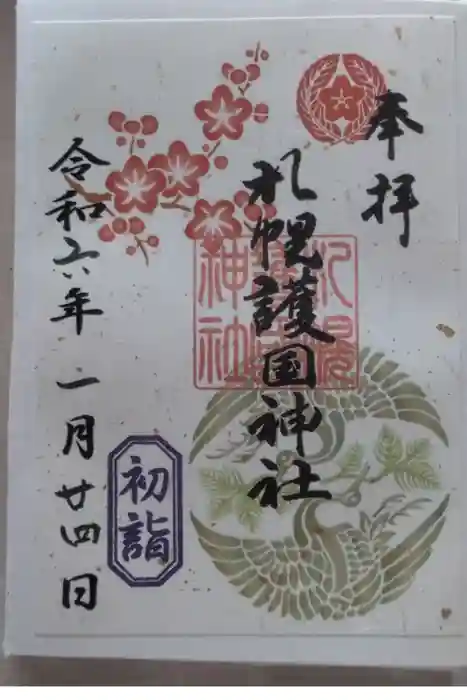 奉拝
札幌護国神社
札幌護国神社
初詣
令和六年一月廿四日